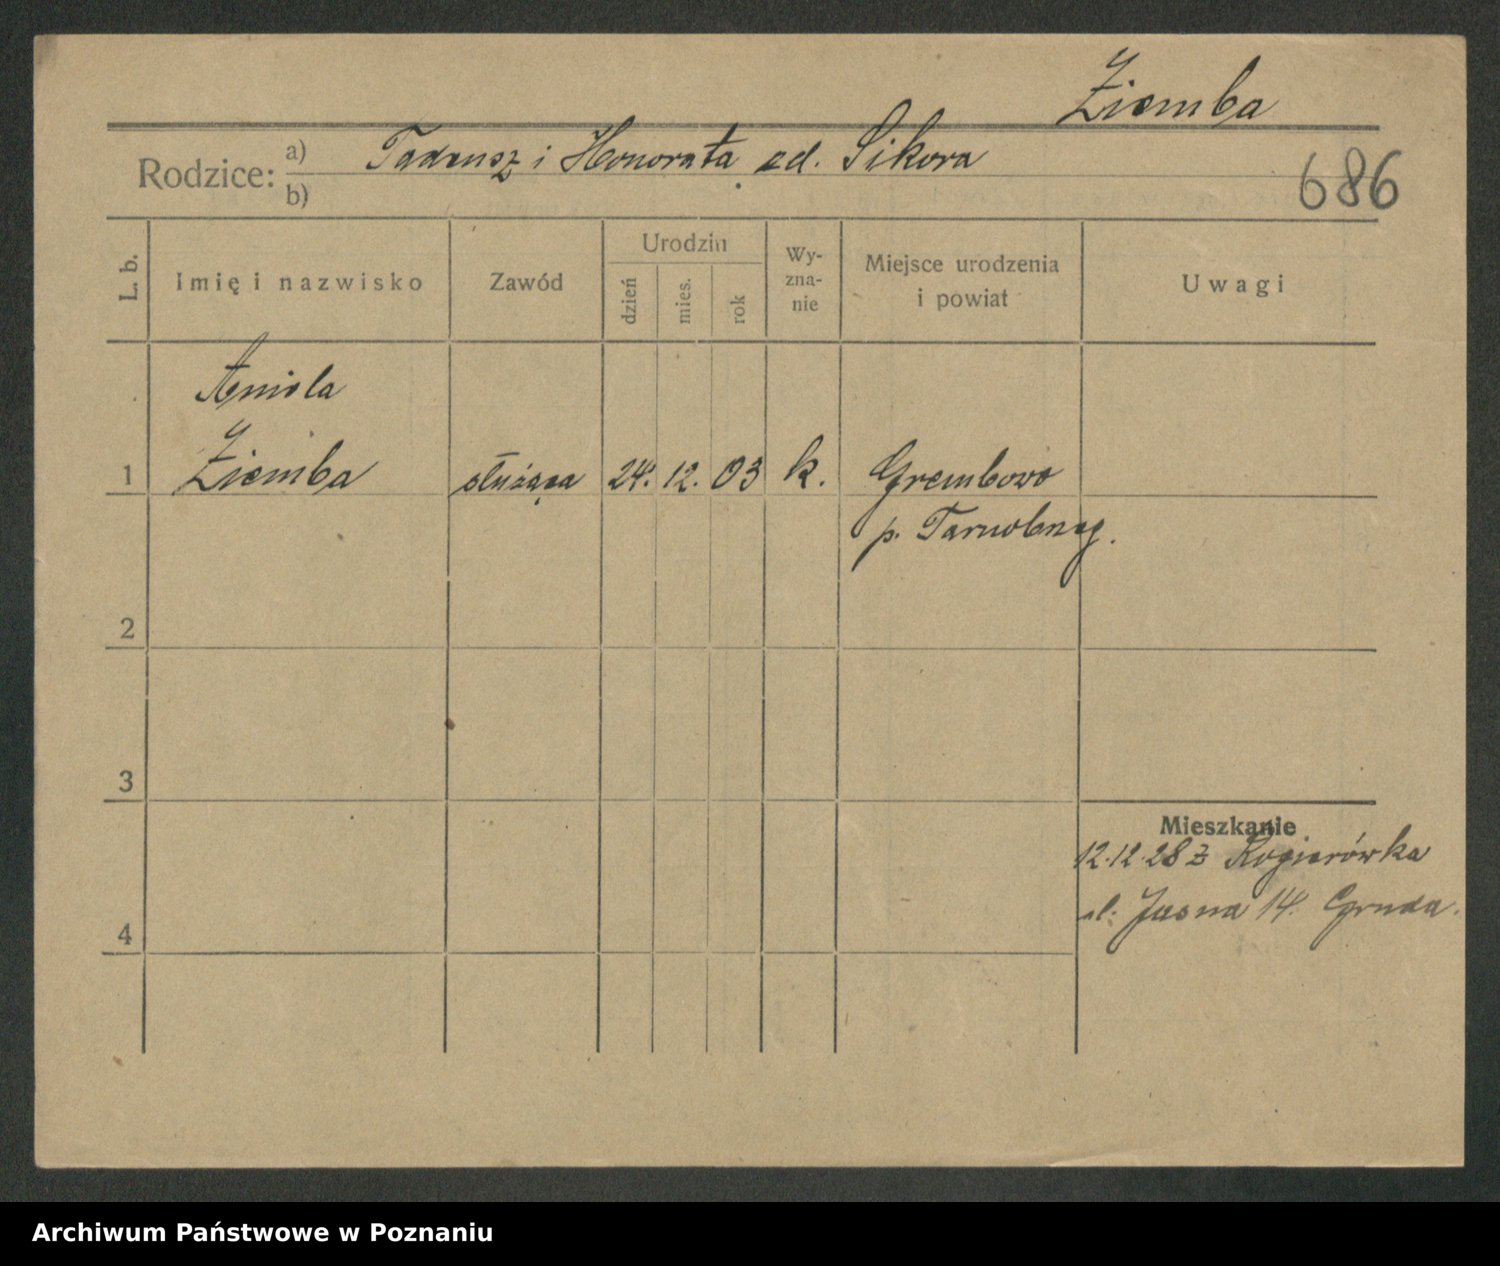 Ziemba
Rodzice: a) Tadeusz i Honorata zd. Sikora
b)
686
L. b.
Imię i nazwisko
Zawód
Urodzin
dzień
mies.
rok
Wy-
zna-
nie
Miejsce urodzenia
i powiat
Uwagi
Aniela
1 Ziemba służąca 24. 12. 03 k. Grembowo
p. Tarnobrzeg.
2
3
Mieszkanie
12.12.28 z Rogierówka
ul. Jasna 14. Gruda.
4
Archiwum Państwowe w Poznaniu